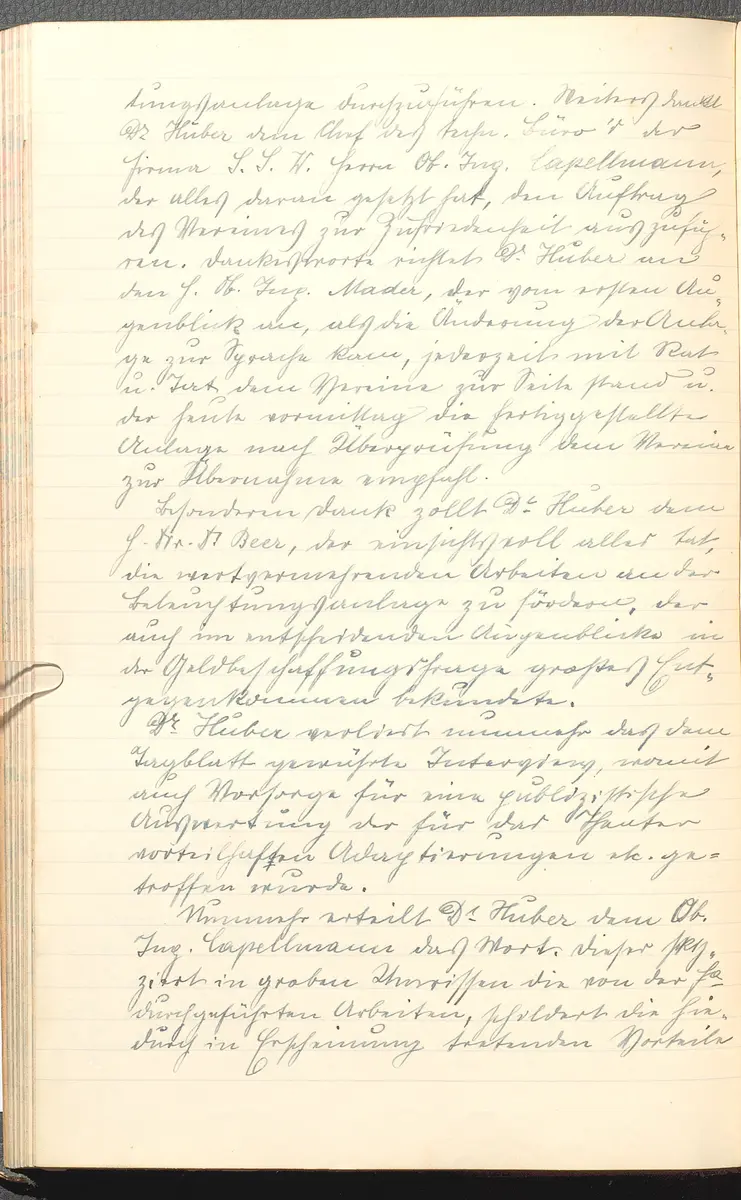 tungsanlage durchzuführen. Weiters dankt
Dr Huber dem Chef des techn. Büro's der
Firma S. S. W. Herrn Ob. Ing. Capellmann,
der alles daran gesetzt hat, den Auftrag
des Vereines zur Zufriedenheit auszufüh-
ren. Dankesworte richtet Dr Huber an
den H. Ob. Ing. Mader, der vom ersten Au-
genblick an, als die Änderung der Anla-
ge zur Sprache kam, jederzeit mit Rat
u. Tat dem Vereine zur Seite stand u.
der heute vormittag die fertiggestellte
Anlage nach Überprüfung dem Vereine
zur Übernahme empfahl.
Besonderen Dank zollt Dr Huber dem
H. Beer, der einsichtsvoll alles tat,
die wertvermehrenden Arbeiten an der
Beleuchtungsanlage zu fördern, der
auch im entscheidenden Augenblicke in
der Geldbeschaffungsfrage großes Ent-
gegenkommen bekundete.
Dr Huber verliest nunmehr das dem
Tagblatt gewährte Interview, womit
auch Vorsorge für eine publizistische
Auswertung der für das Theater
vorteilhaften Adaptierungen etc. ge=
troffen wurde.
Nunmehr erteilt Dr Huber dem Ob.
Ing. Capellmann das Wort. Dieser skiz-
ziert in groben Umrissen die von der Fa
durchgeführten Arbeiten, schildert die hie-
durch in Erscheinung tretenden Vorteile